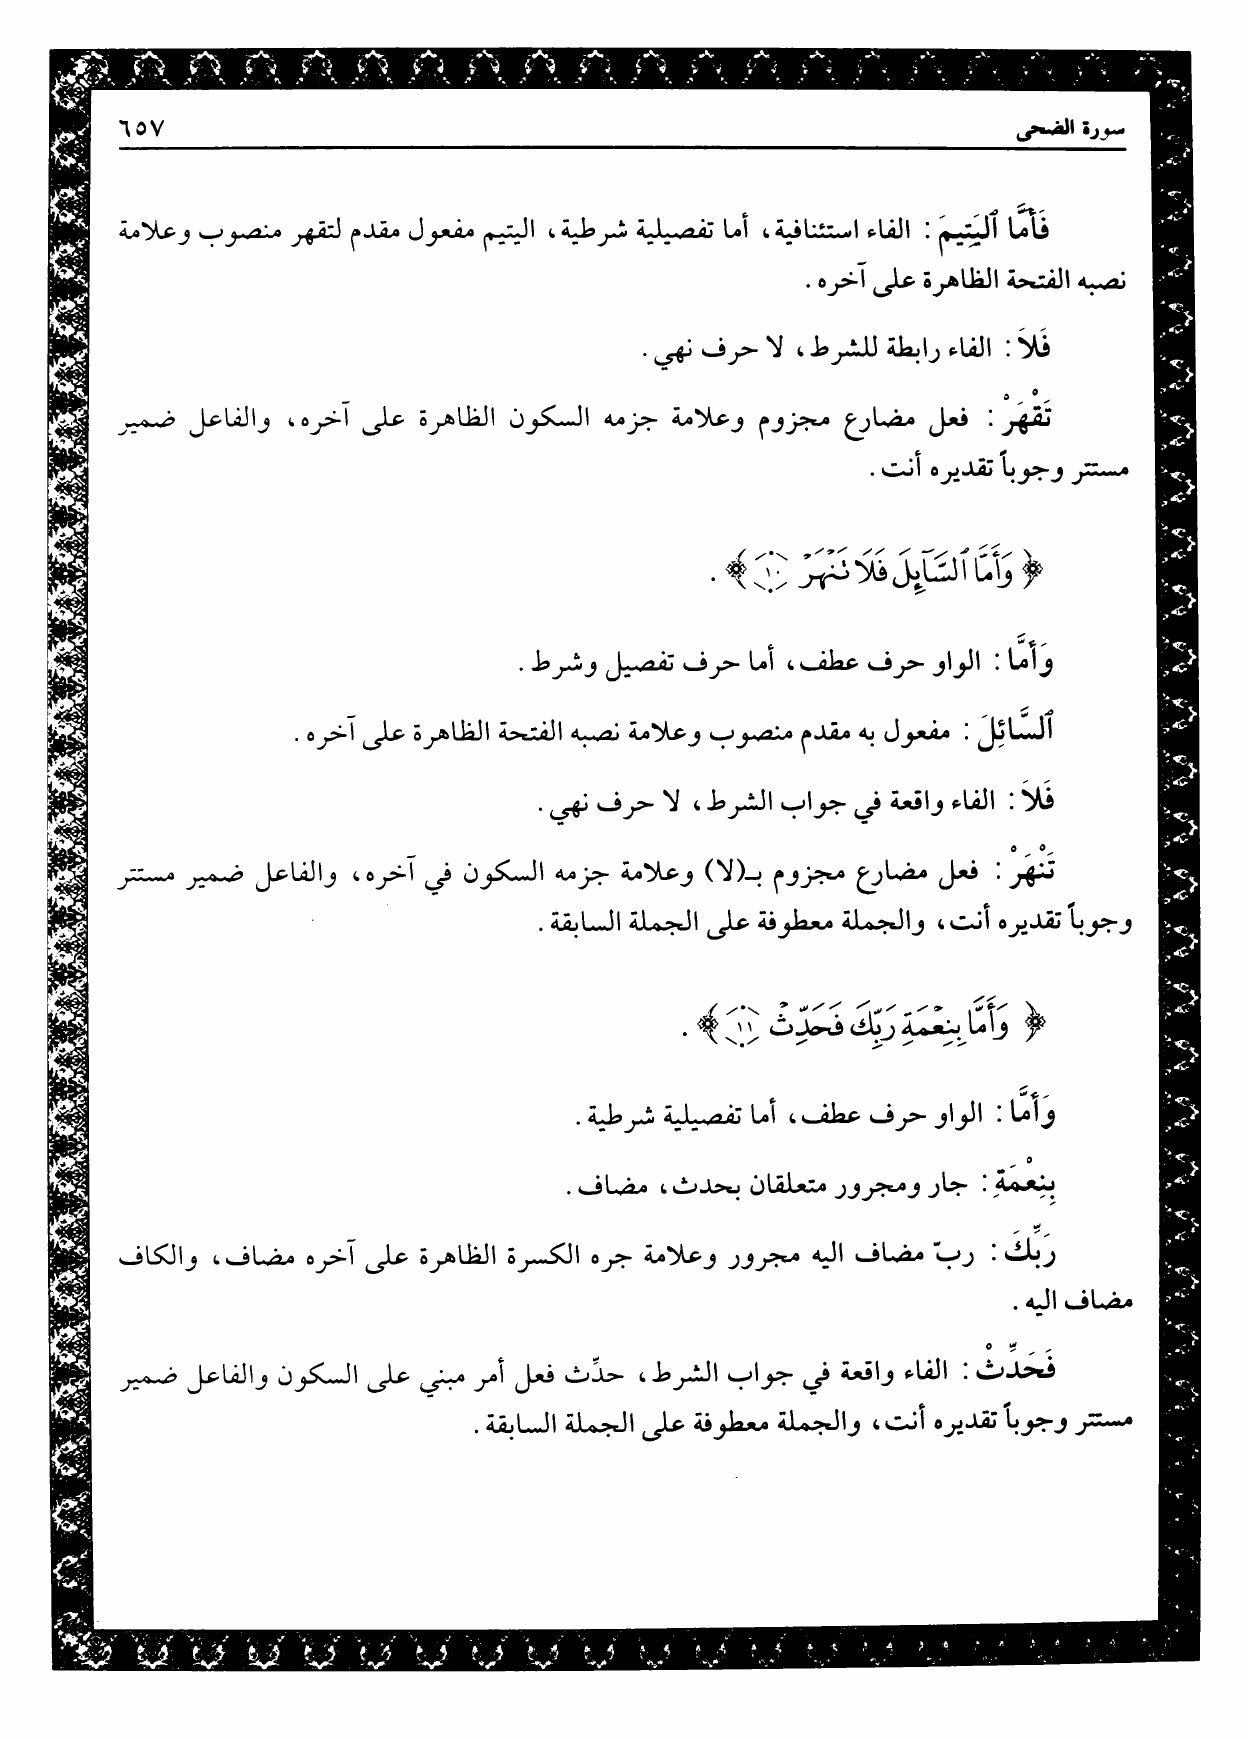 سورة الضحى ٦٥٧
فَأَمَّا ٱلْيَتِيمَ : الفاء استئنافية، أما تفصيلية شرطية، اليتيم مفعول مقدم لتقهر منصوب وعلامة
نصبه الفتحة الظاهرة على آخره .
فَلاَ : الفاء رابطة للشرط، لا حرف نهي .
تَقْهَرْ : فعل مضارع مجزوم وعلامة جزمه السكون الظاهرة على آخره، والفاعل ضمير
مستتر وجوباً تقديره أنت .
﴿ وَأَمَّا ٱلسَّآئِلَ فَلَا تَنْهَرْ ١٠ ﴾ .
وَأَمَّا : الواو حرف عطف، أما حرف تفصيل وشرط .
ٱلسَّائِلَ : مفعول به مقدم منصوب وعلامة نصبه الفتحة الظاهرة على آخره .
فَلاَ : الفاء واقعة في جواب الشرط، لا حرف نهي .
تَنْهَرْ : فعل مضارع مجزوم بـ(لا) وعلامة جزمه السكون في آخره، والفاعل ضمير مستتر
وجوباً تقديره أنت، والجملة معطوفة على الجملة السابقة .
﴿ وَأَمَّا بِنِعْمَةِ رَبِّكَ فَحَدِّثْ ١١ ﴾ .
وَأَمَّا : الواو حرف عطف، أما تفصيلية شرطية .
بِنِعْمَةِ : جار ومجرور متعلقان بحدث، مضاف .
رَبِّكَ : ربّ مضاف اليه مجرور وعلامة جره الكسرة الظاهرة على آخره مضاف، والكاف
مضاف اليه .
فَحَدِّثْ : الفاء واقعة في جواب الشرط، حدِّث فعل أمر مبني على السكون والفاعل ضمير
مستتر وجوباً تقديره أنت، والجملة معطوفة على الجملة السابقة .